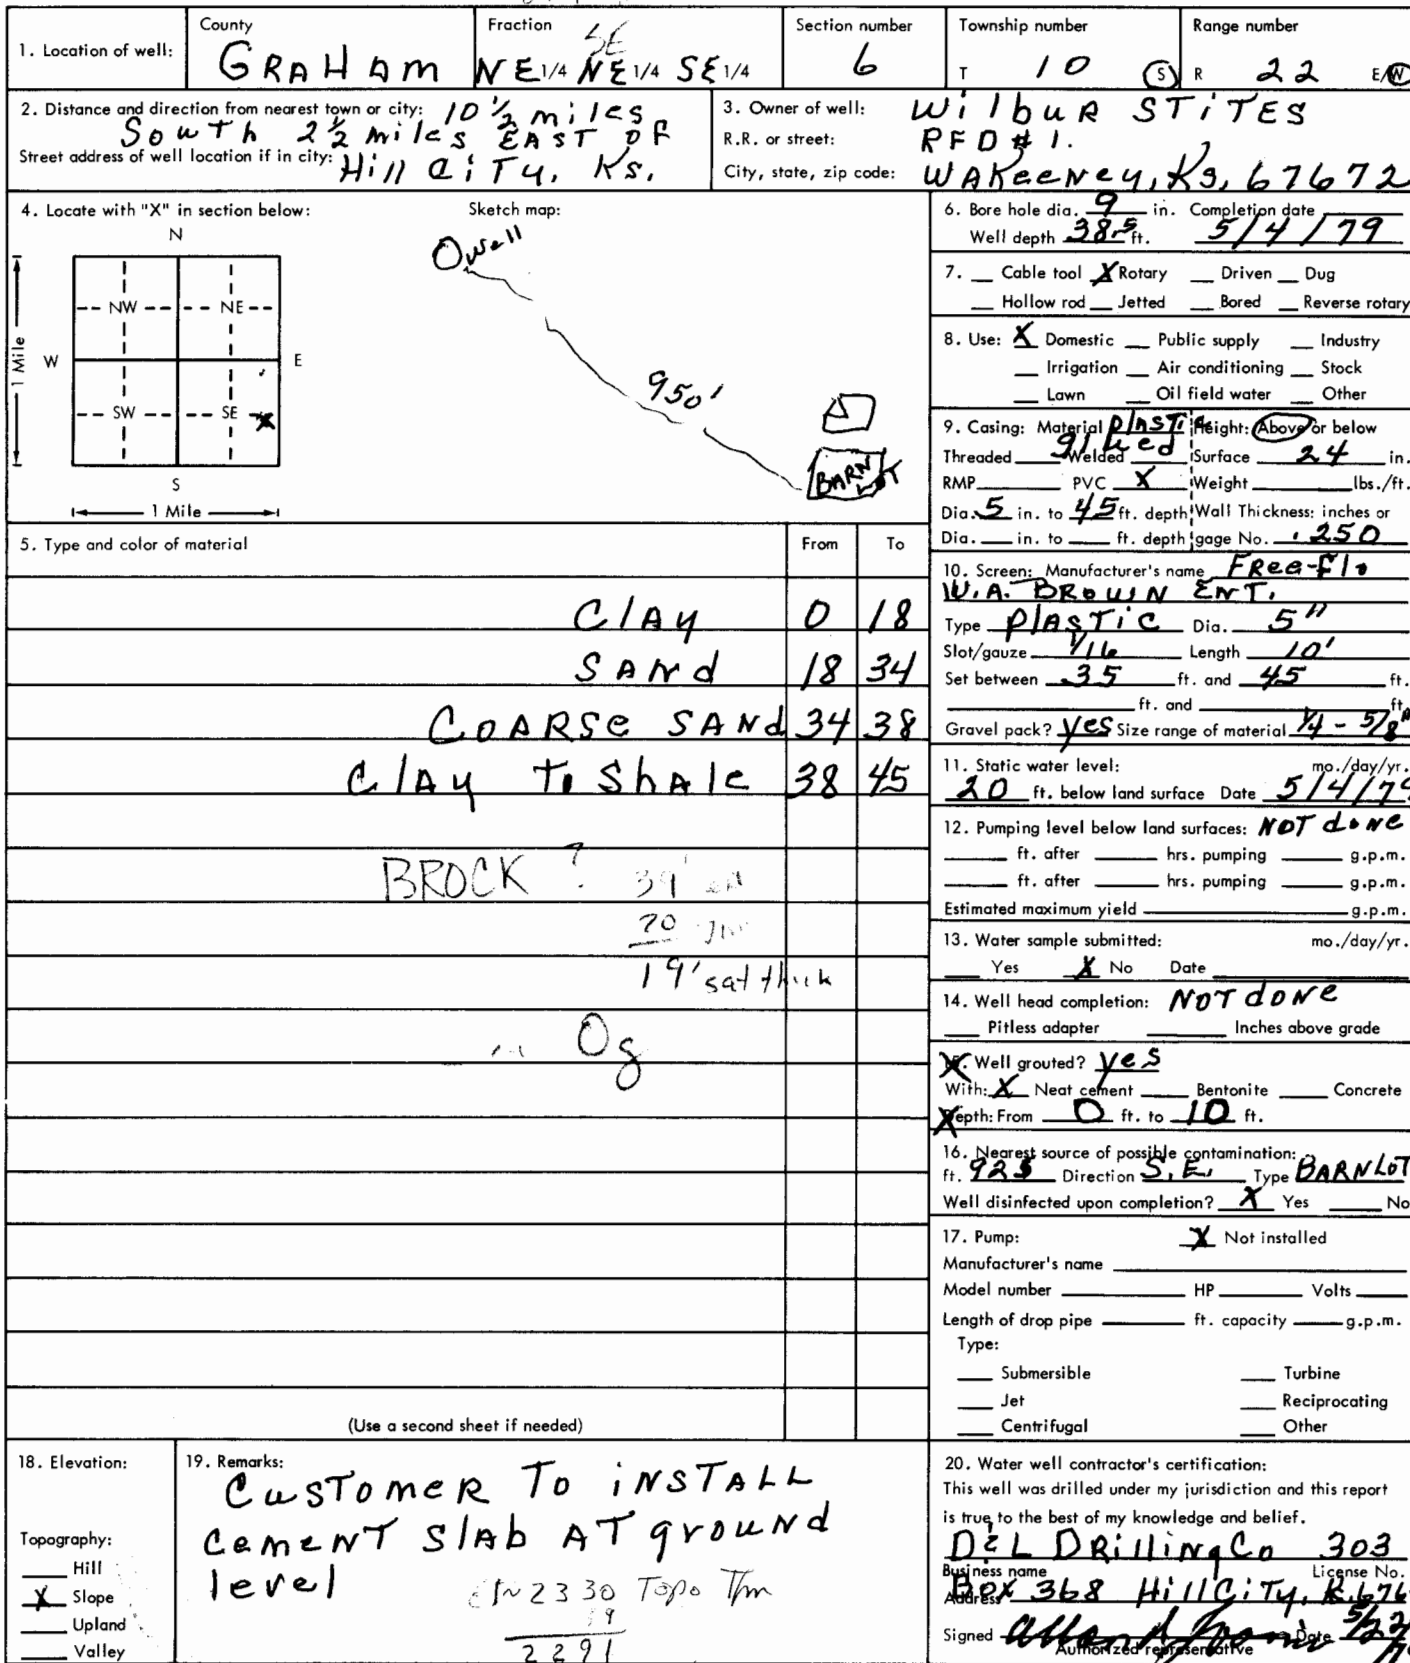 1. Location of well:
County
GRAHAM
Fraction
SE
NE 1/4 NE 1/4 SE 1/4
Section number
6
Township number
T 10 S
Range number
R 22 E/W
2. Distance and direction from nearest town or city: 10 1/2 miles
South 2 1/2 miles EAST OF
Street address of well location if in city: Hill CiTY, Ks.
3. Owner of well: WilbuR STiTES
R.R. or street: RFD #1.
City, state, zip code: WAKeeNey, Ks, 67672
4. Locate with "X" in section below:
N
NW NE
W E
SW SE X
S
1 Mile
1 Mile
Sketch map:
Well
950'
BARN LOT
5. Type and color of material From To
ClAy 0 18
SANd 18 34
COARSe SANd 34 38
ClAy To ShAle 38 45
BROCK ? 39'
20
19' sat thick
Og
(Use a second sheet if needed)
6. Bore hole dia. 9 in. Completion date
Well depth 38.5 ft. 5/4/79
7. Cable tool X Rotary Driven Dug
Hollow rod Jetted Bored Reverse rotary
8. Use: X Domestic Public supply Industry
Irrigation Air conditioning Stock
Lawn Oil field water Other
9. Casing: Material PlASTic Height: Above or below
glued
Threaded Welded Surface 24 in.
RMP PVC X Weight lbs./ft.
Dia. 5 in. to 45 ft. depth Wall Thickness: inches or
Dia. in. to ft. depth gage No. .250
10. Screen: Manufacturer's name FRee-Flo
W.A. BROWN ENT.
Type PlASTiC Dia. 5"
Slot/gauze 1/16 Length 10'
Set between 35 ft. and 45 ft.
ft. and ft.
Gravel pack? yes Size range of material 1/4 - 5/8"
11. Static water level: mo./day/yr.
20 ft. below land surface Date 5/4/79
12. Pumping level below land surfaces: NOT doNe
ft. after hrs. pumping g.p.m.
ft. after hrs. pumping g.p.m.
Estimated maximum yield g.p.m.
13. Water sample submitted: mo./day/yr.
Yes X No Date
14. Well head completion: NOT doNe
Pitless adapter Inches above grade
15. Well grouted? yes
With: X Neat cement Bentonite Concrete
Depth: From 0 ft. to 10 ft.
16. Nearest source of possible contamination:
ft. 925 Direction S.E. Type BARNLOT
Well disinfected upon completion? X Yes No
17. Pump: X Not installed
Manufacturer's name
Model number HP Volts
Length of drop pipe ft. capacity g.p.m.
Type:
Submersible Turbine
Jet Reciprocating
Centrifugal Other
18. Elevation:
Topography:
Hill
X Slope
Upland
Valley
19. Remarks:
CuSTomeR To iNSTALL
CemeNT SlAb AT grouNd
level
2330 Topo Tm
39
2291
20. Water well contractor's certification:
This well was drilled under my jurisdiction and this report
is true to the best of my knowledge and belief.
D&L DRilliNg Co 303
Business name License No.
Address Box 368 Hill CiTY, K. 676
Signed Date 5/22/
Authorized representative